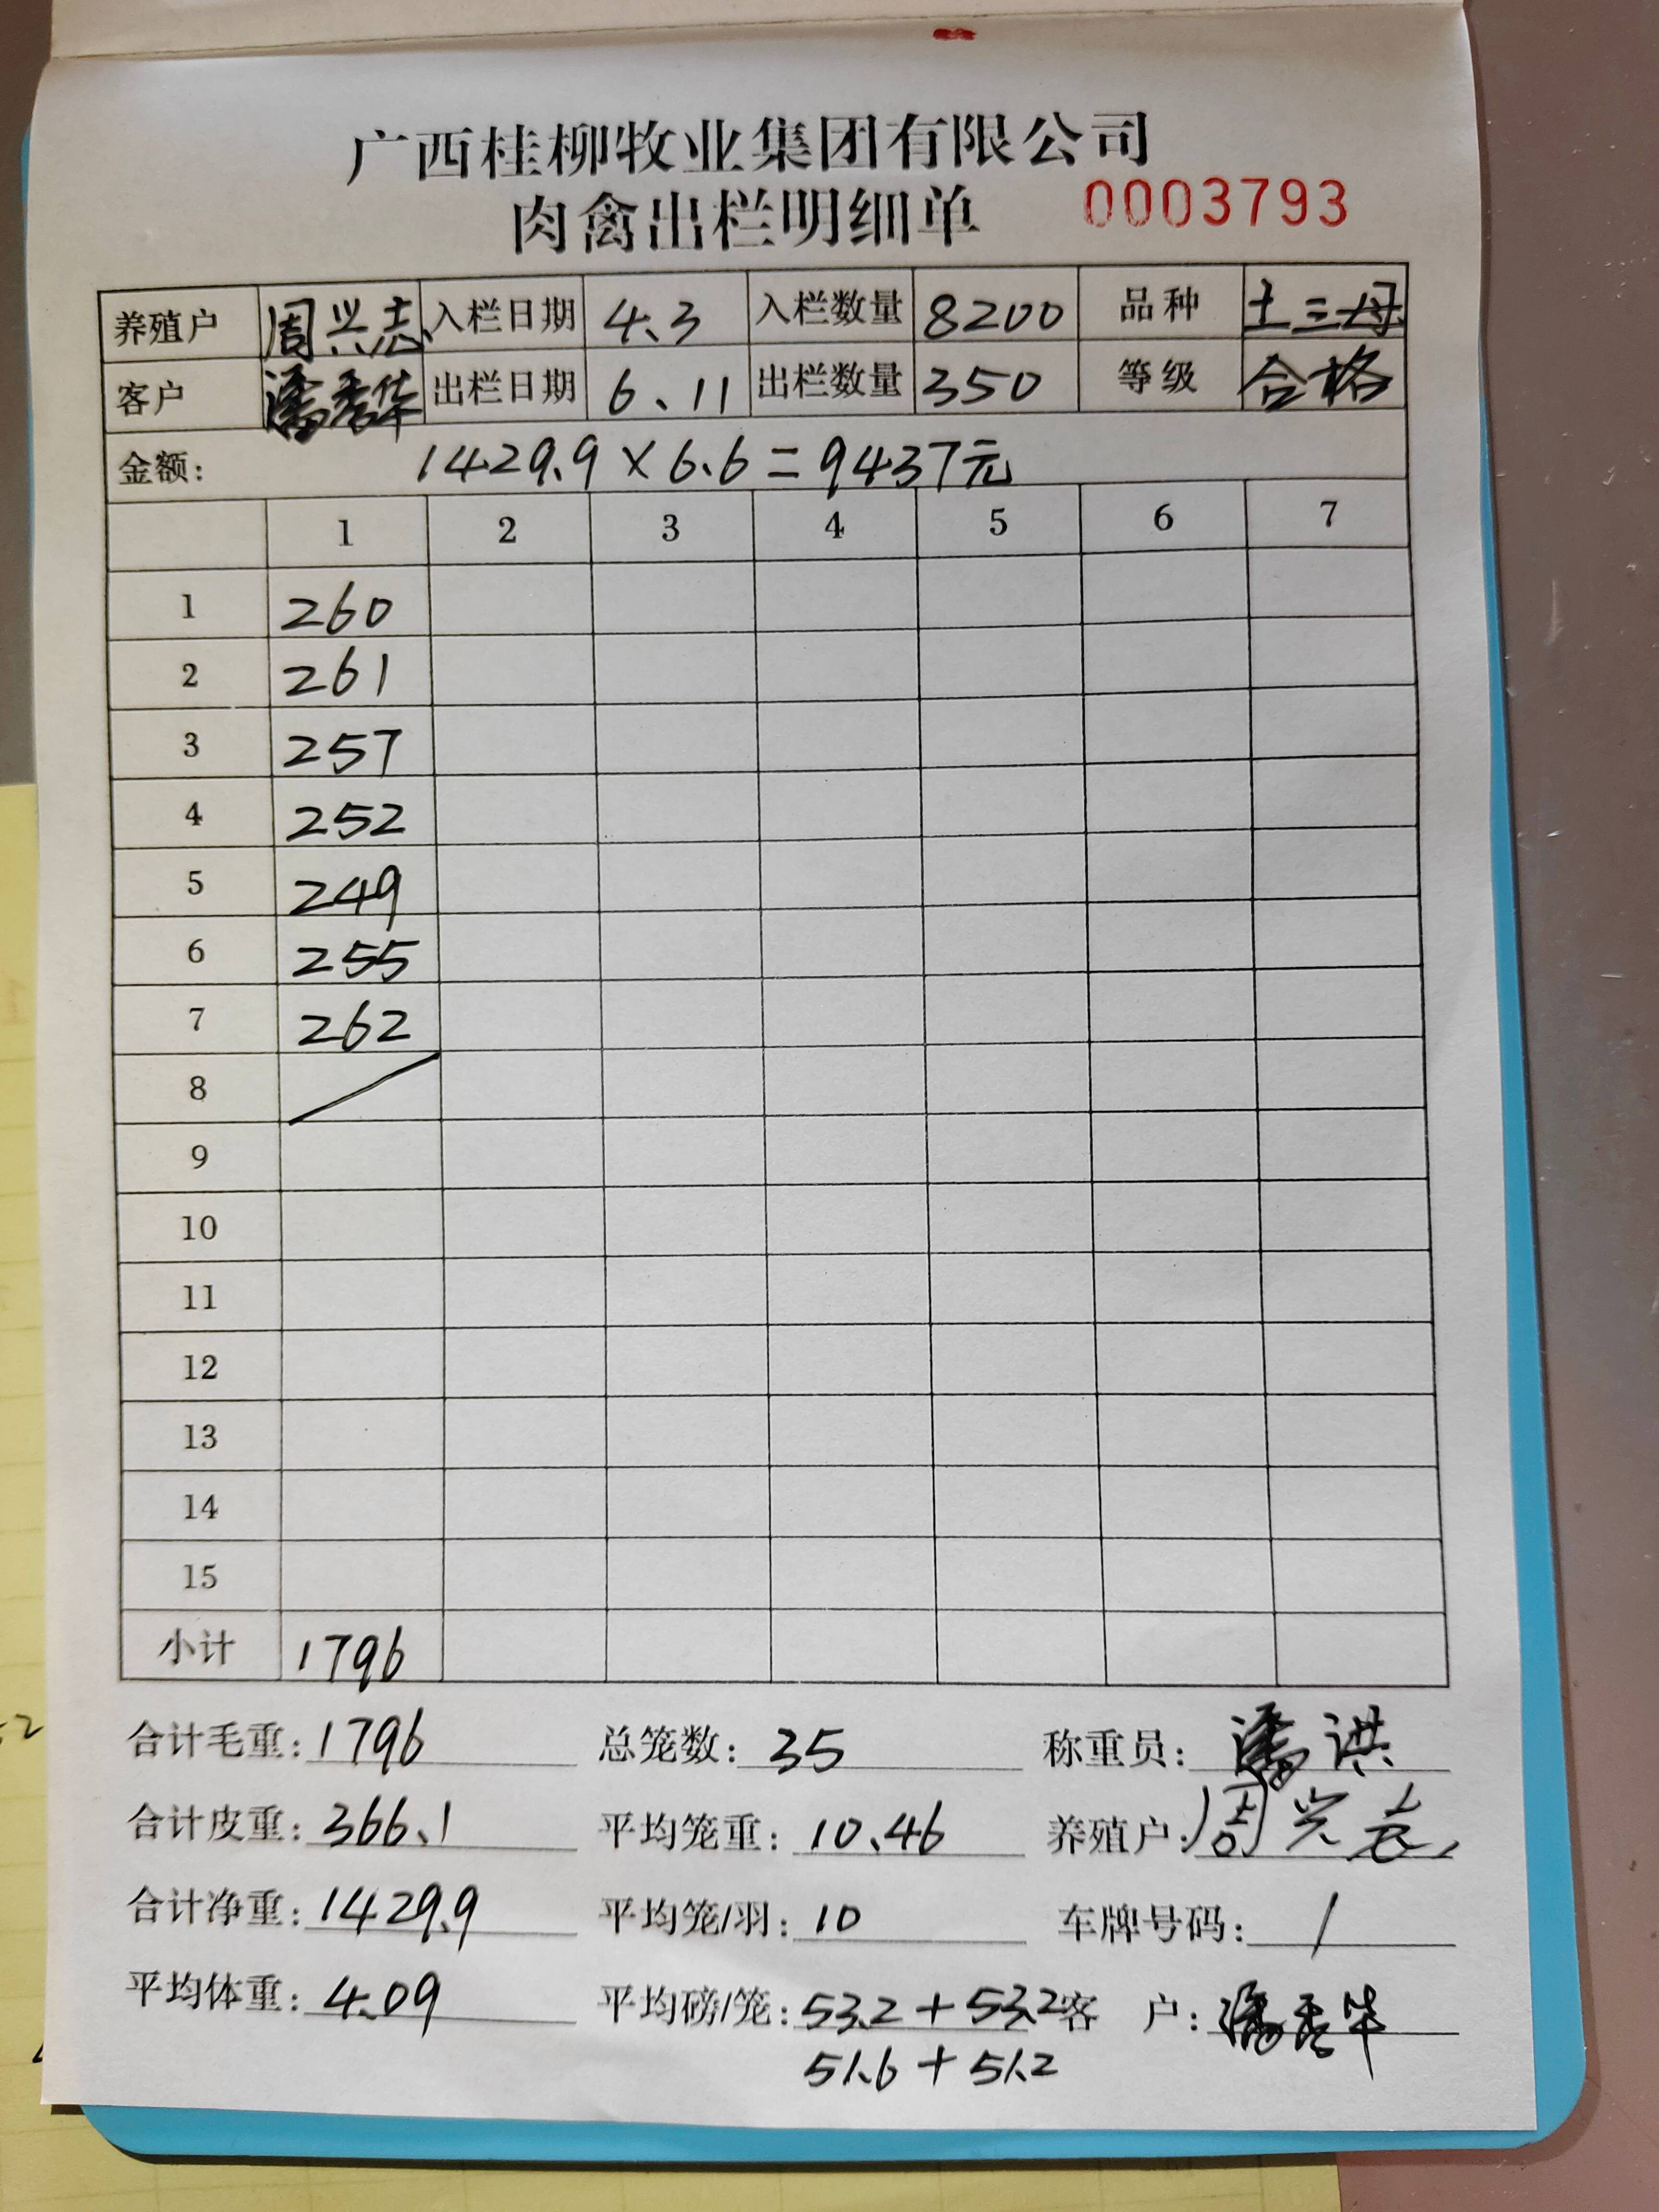 广西桂柳牧业集团有限公司
肉禽出栏明细单 0003793
养殖户 周兴志 入栏日期 4.3 入栏数量 8200 品种 土三母
客户 潘秀华 出栏日期 6.11 出栏数量 350 等级 合格
金额: 1429.9×6.6=9437元
1 2 3 4 5 6 7
1 260
2 261
3 257
4 252
5 249
6 255
7 262
8
9
10
11
12
13
14
15
小计 1796
合计毛重: 1796 总笼数: 35 称重员: 潘洪
合计皮重: 366.1 平均笼重: 10.46 养殖户: 周兴志
合计净重: 1429.9 平均笼/羽: 10 车牌号码: /
平均体重: 4.09 平均磅/笼: 53.2+53.2 客 户: 潘秀华
51.6+51.2